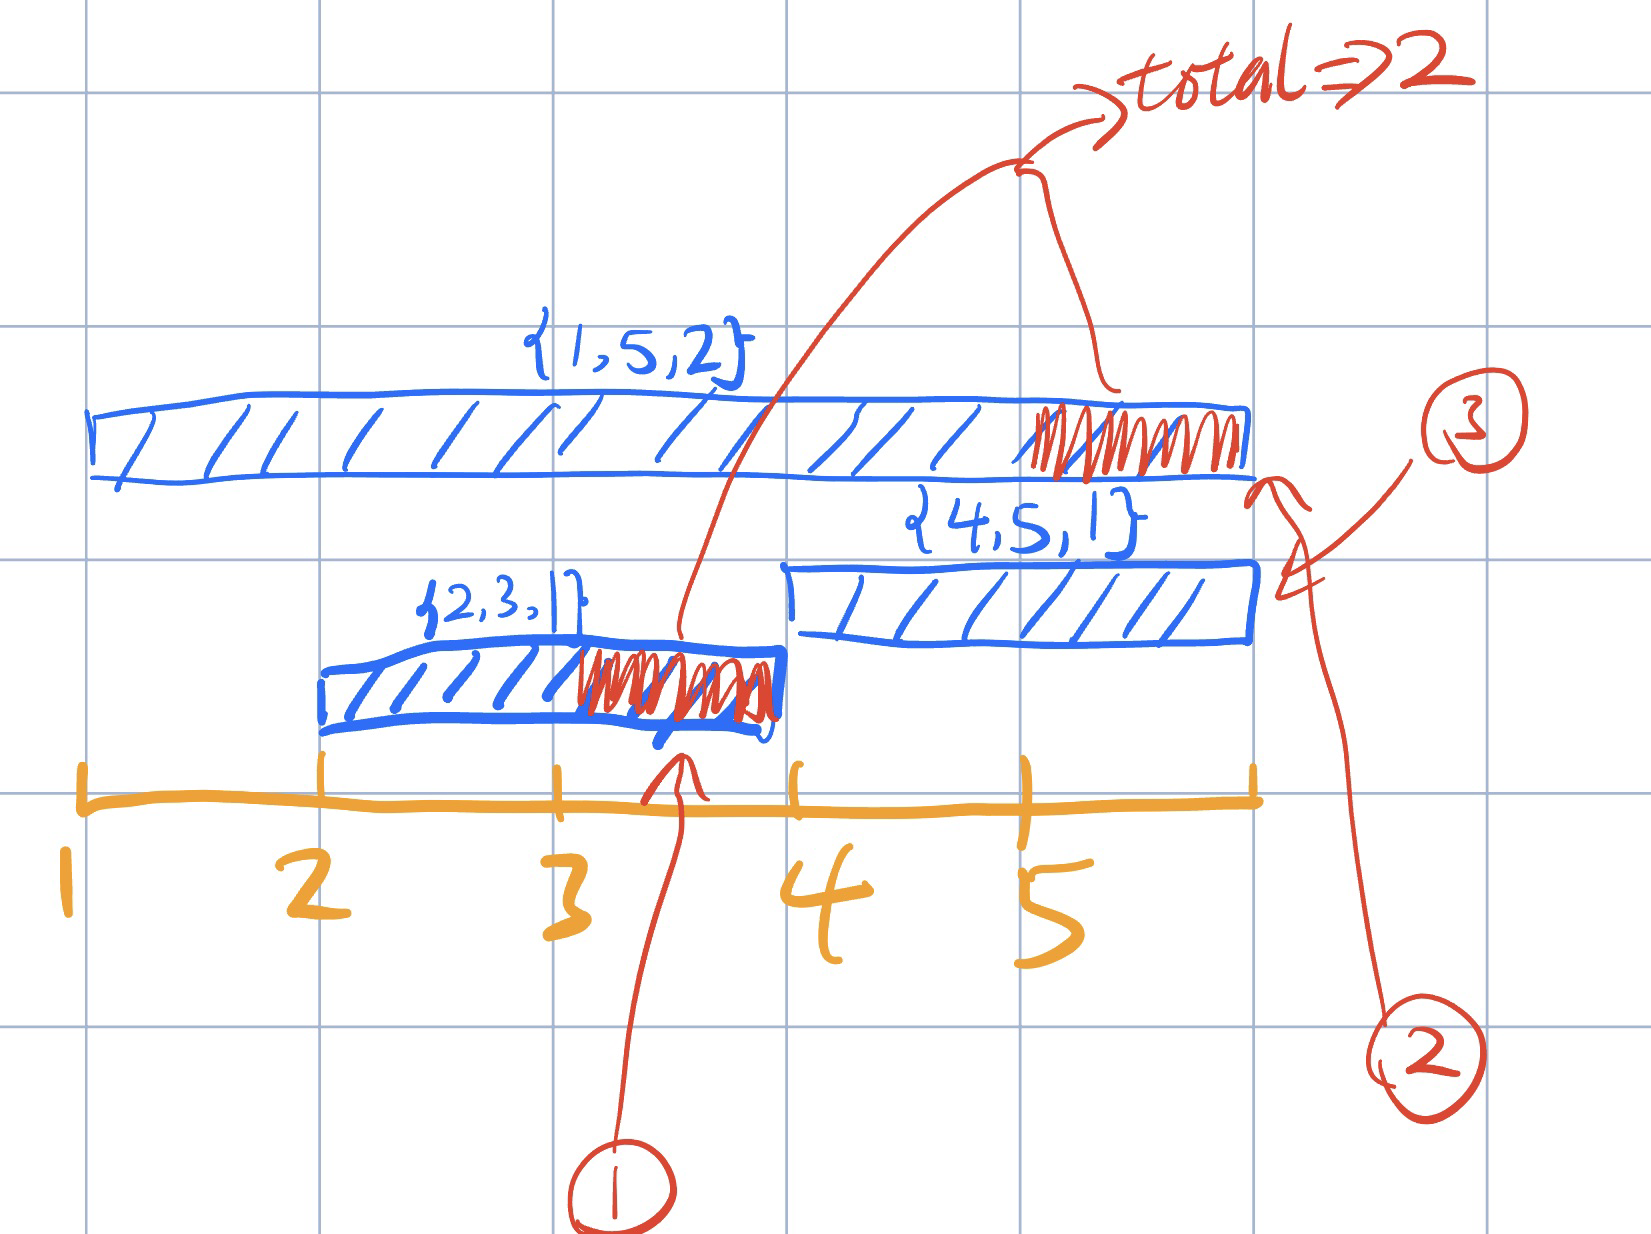 total => 2
{1,5,2}
3
{4,5,1}
{2,3,1}
1 2 3 4 5
2
1